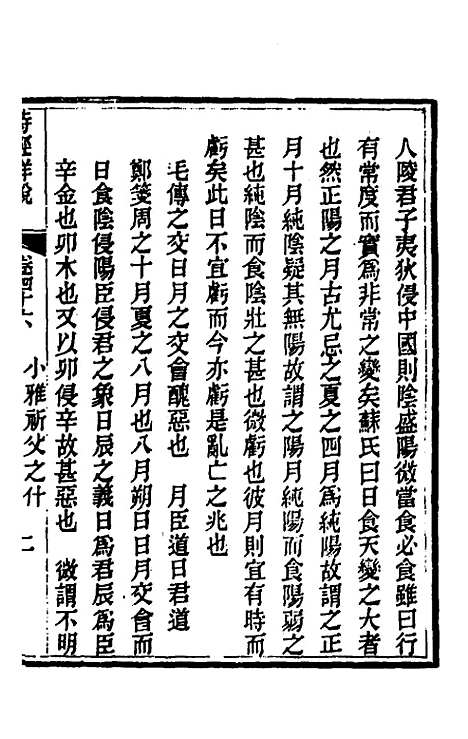 人陵君子夷狄侵中國則陰盛陽微當食必食雖曰行
有常度而實爲非常之變矣蘇氏曰日食天變之大者
也然正陽之月古尤忌之夏之四月爲純陽故謂之正
月十月純陰疑其無陽故謂之陽月純陽而食陽弱之
甚也純陰而食陰壯之甚也微虧也彼月則宜有時而
虧矣此日不宜虧而今亦虧是亂亡之兆也
毛傳之交日月之交會醜惡也　月臣道日君道
鄭箋周之十月夏之八月也八月朔日日月交會而
日食陰侵陽臣侵君之象日辰之義日爲君辰爲臣
辛金也卯木也又以卯侵辛故甚惡也　微謂不明
詩經詳說
卷四十六
小雅祈父之什
二